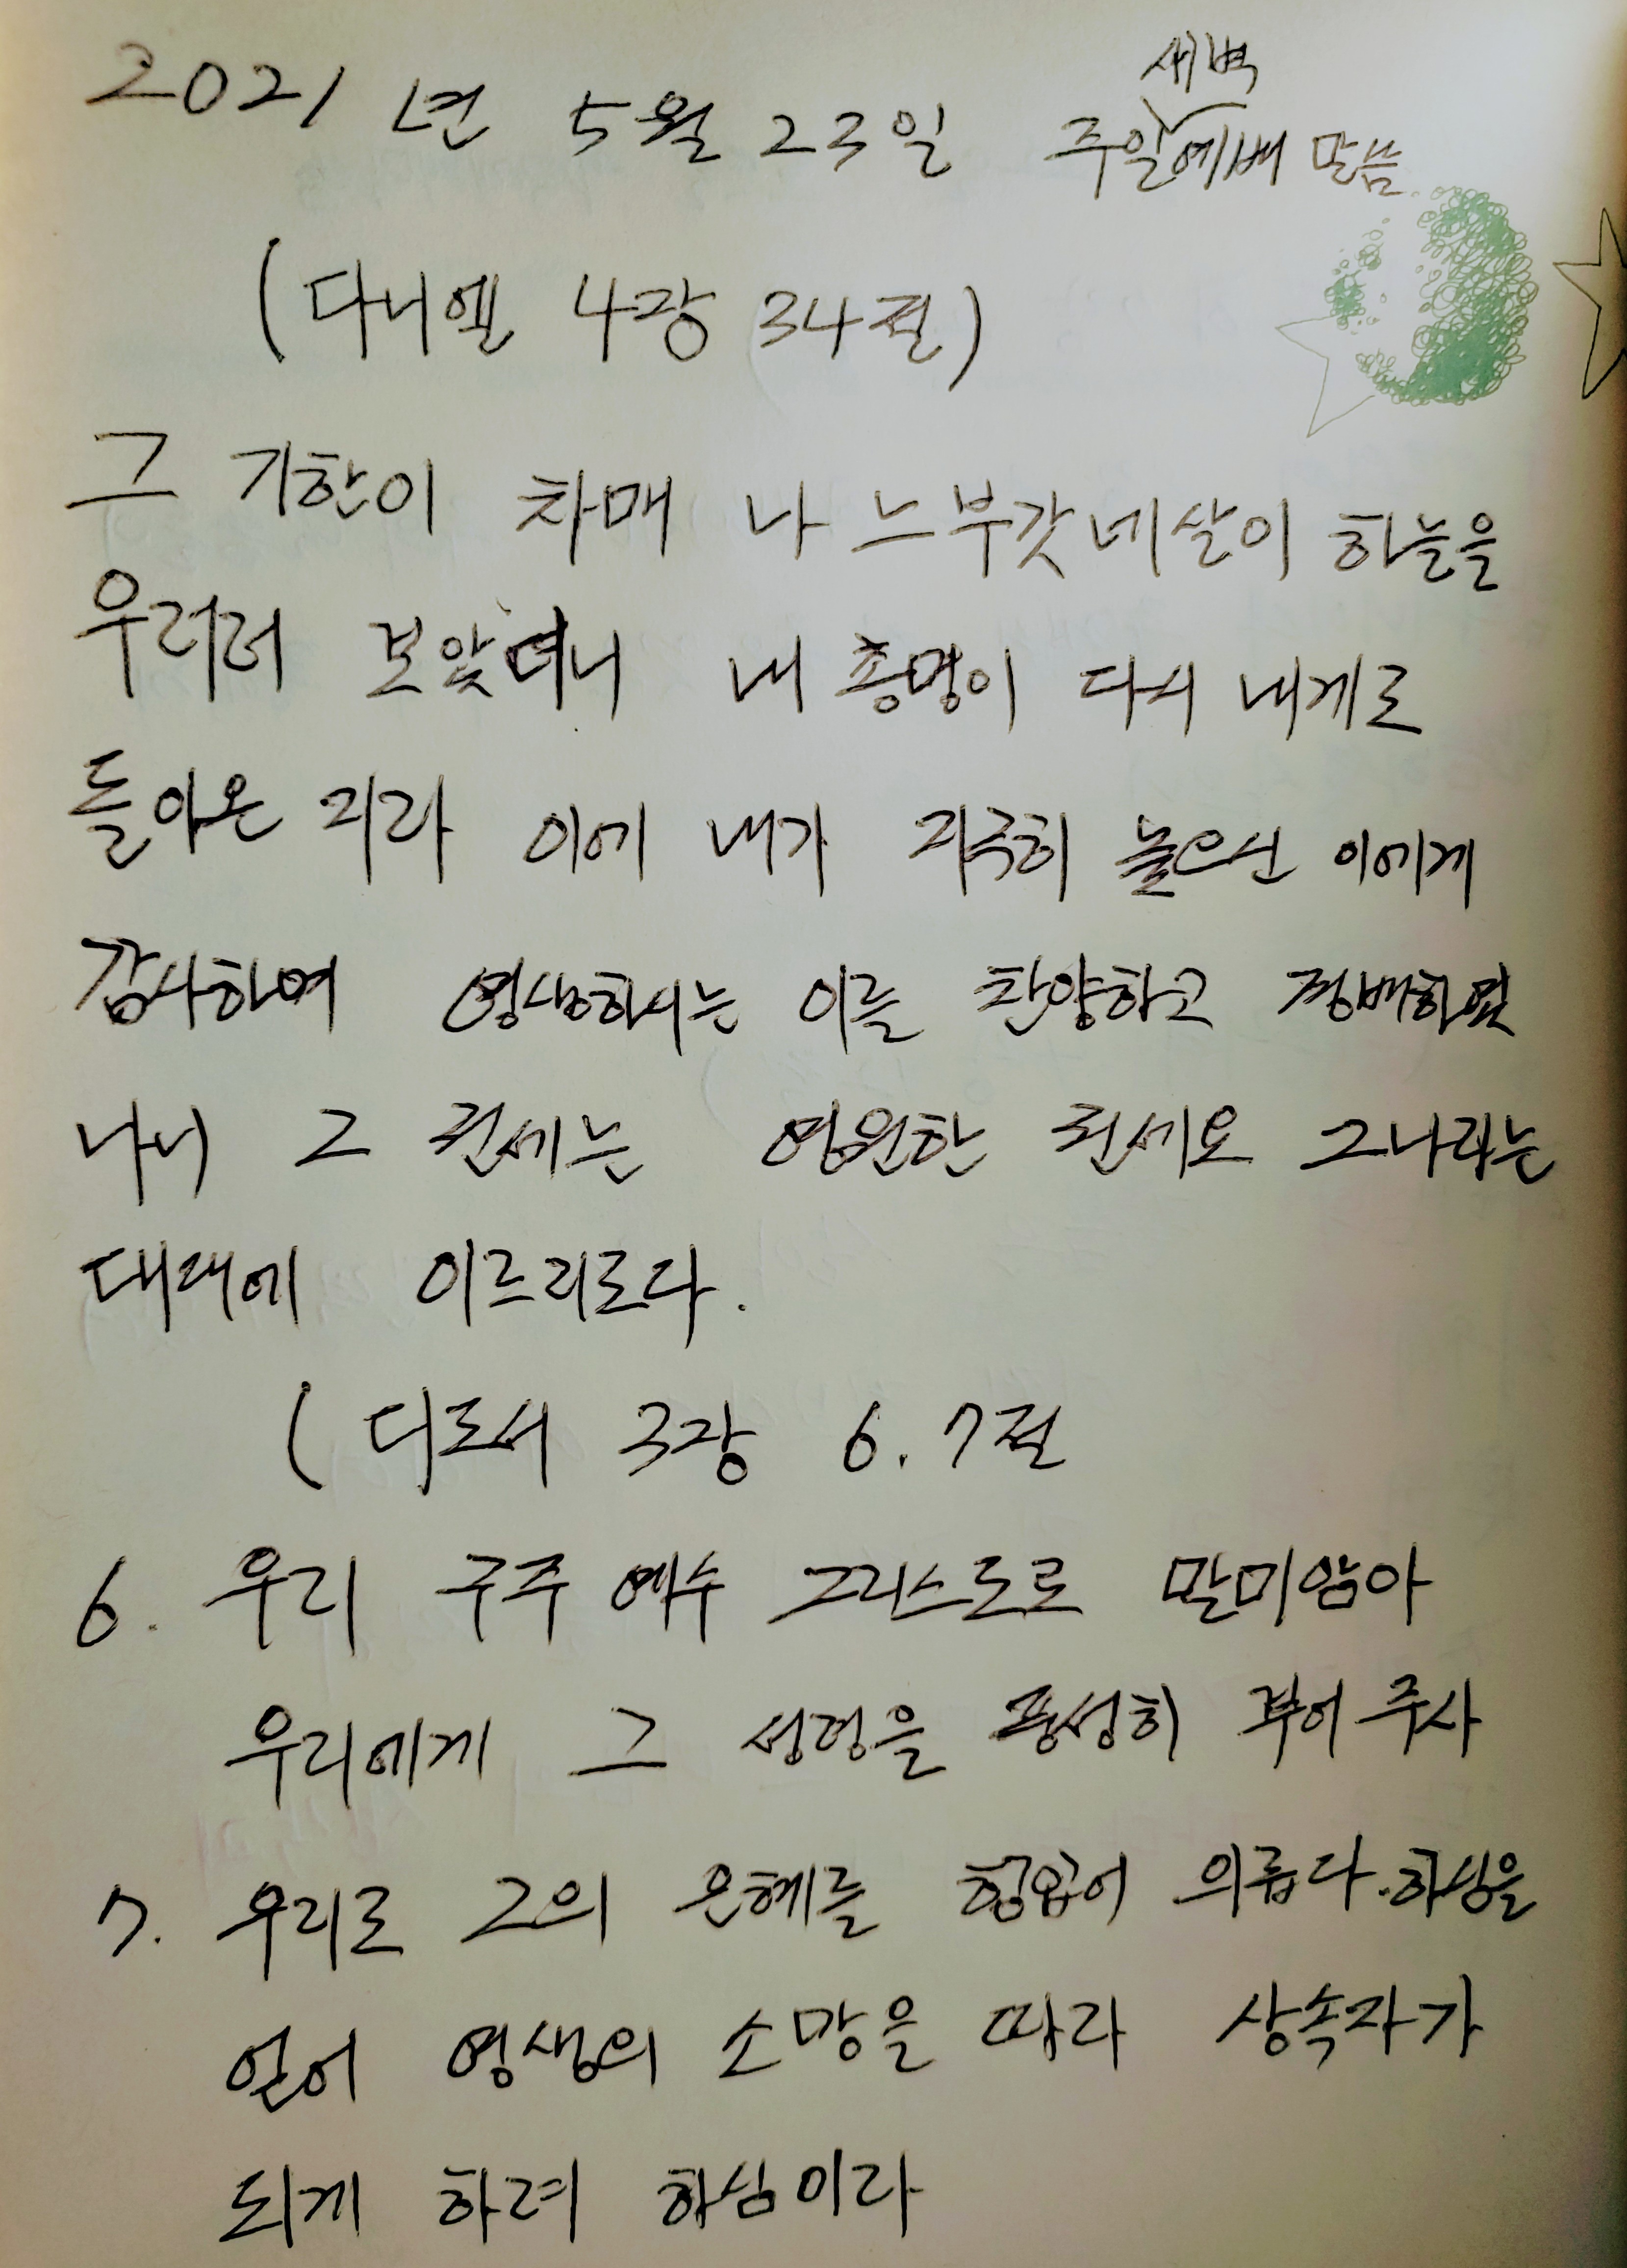 2021년 5월 23일 주일새벽예배 말씀
(다니엘 4장 34절)
그 기한이 차매 나 느부갓네살이 하늘을
우러러 보았더니 내 총명이 다시 내게로
돌아온 지라 이에 내가 지극히 높으신 이에게
감사하며 영생하시는 이를 찬양하고 경배하였
나니 그 권세는 영원한 권세요 그나라는
대대에 이르리로다.
(디도서 3장 6.7절
6. 우리 구주 예수 그리스도로 말미암아
우리에게 그 성령을 풍성히 부어 주사
7. 우리로 그의 은혜를 힘입어 의롭다.하심을
얻어 영생의 소망을 따라 상속자가
되게 하려 하심이라